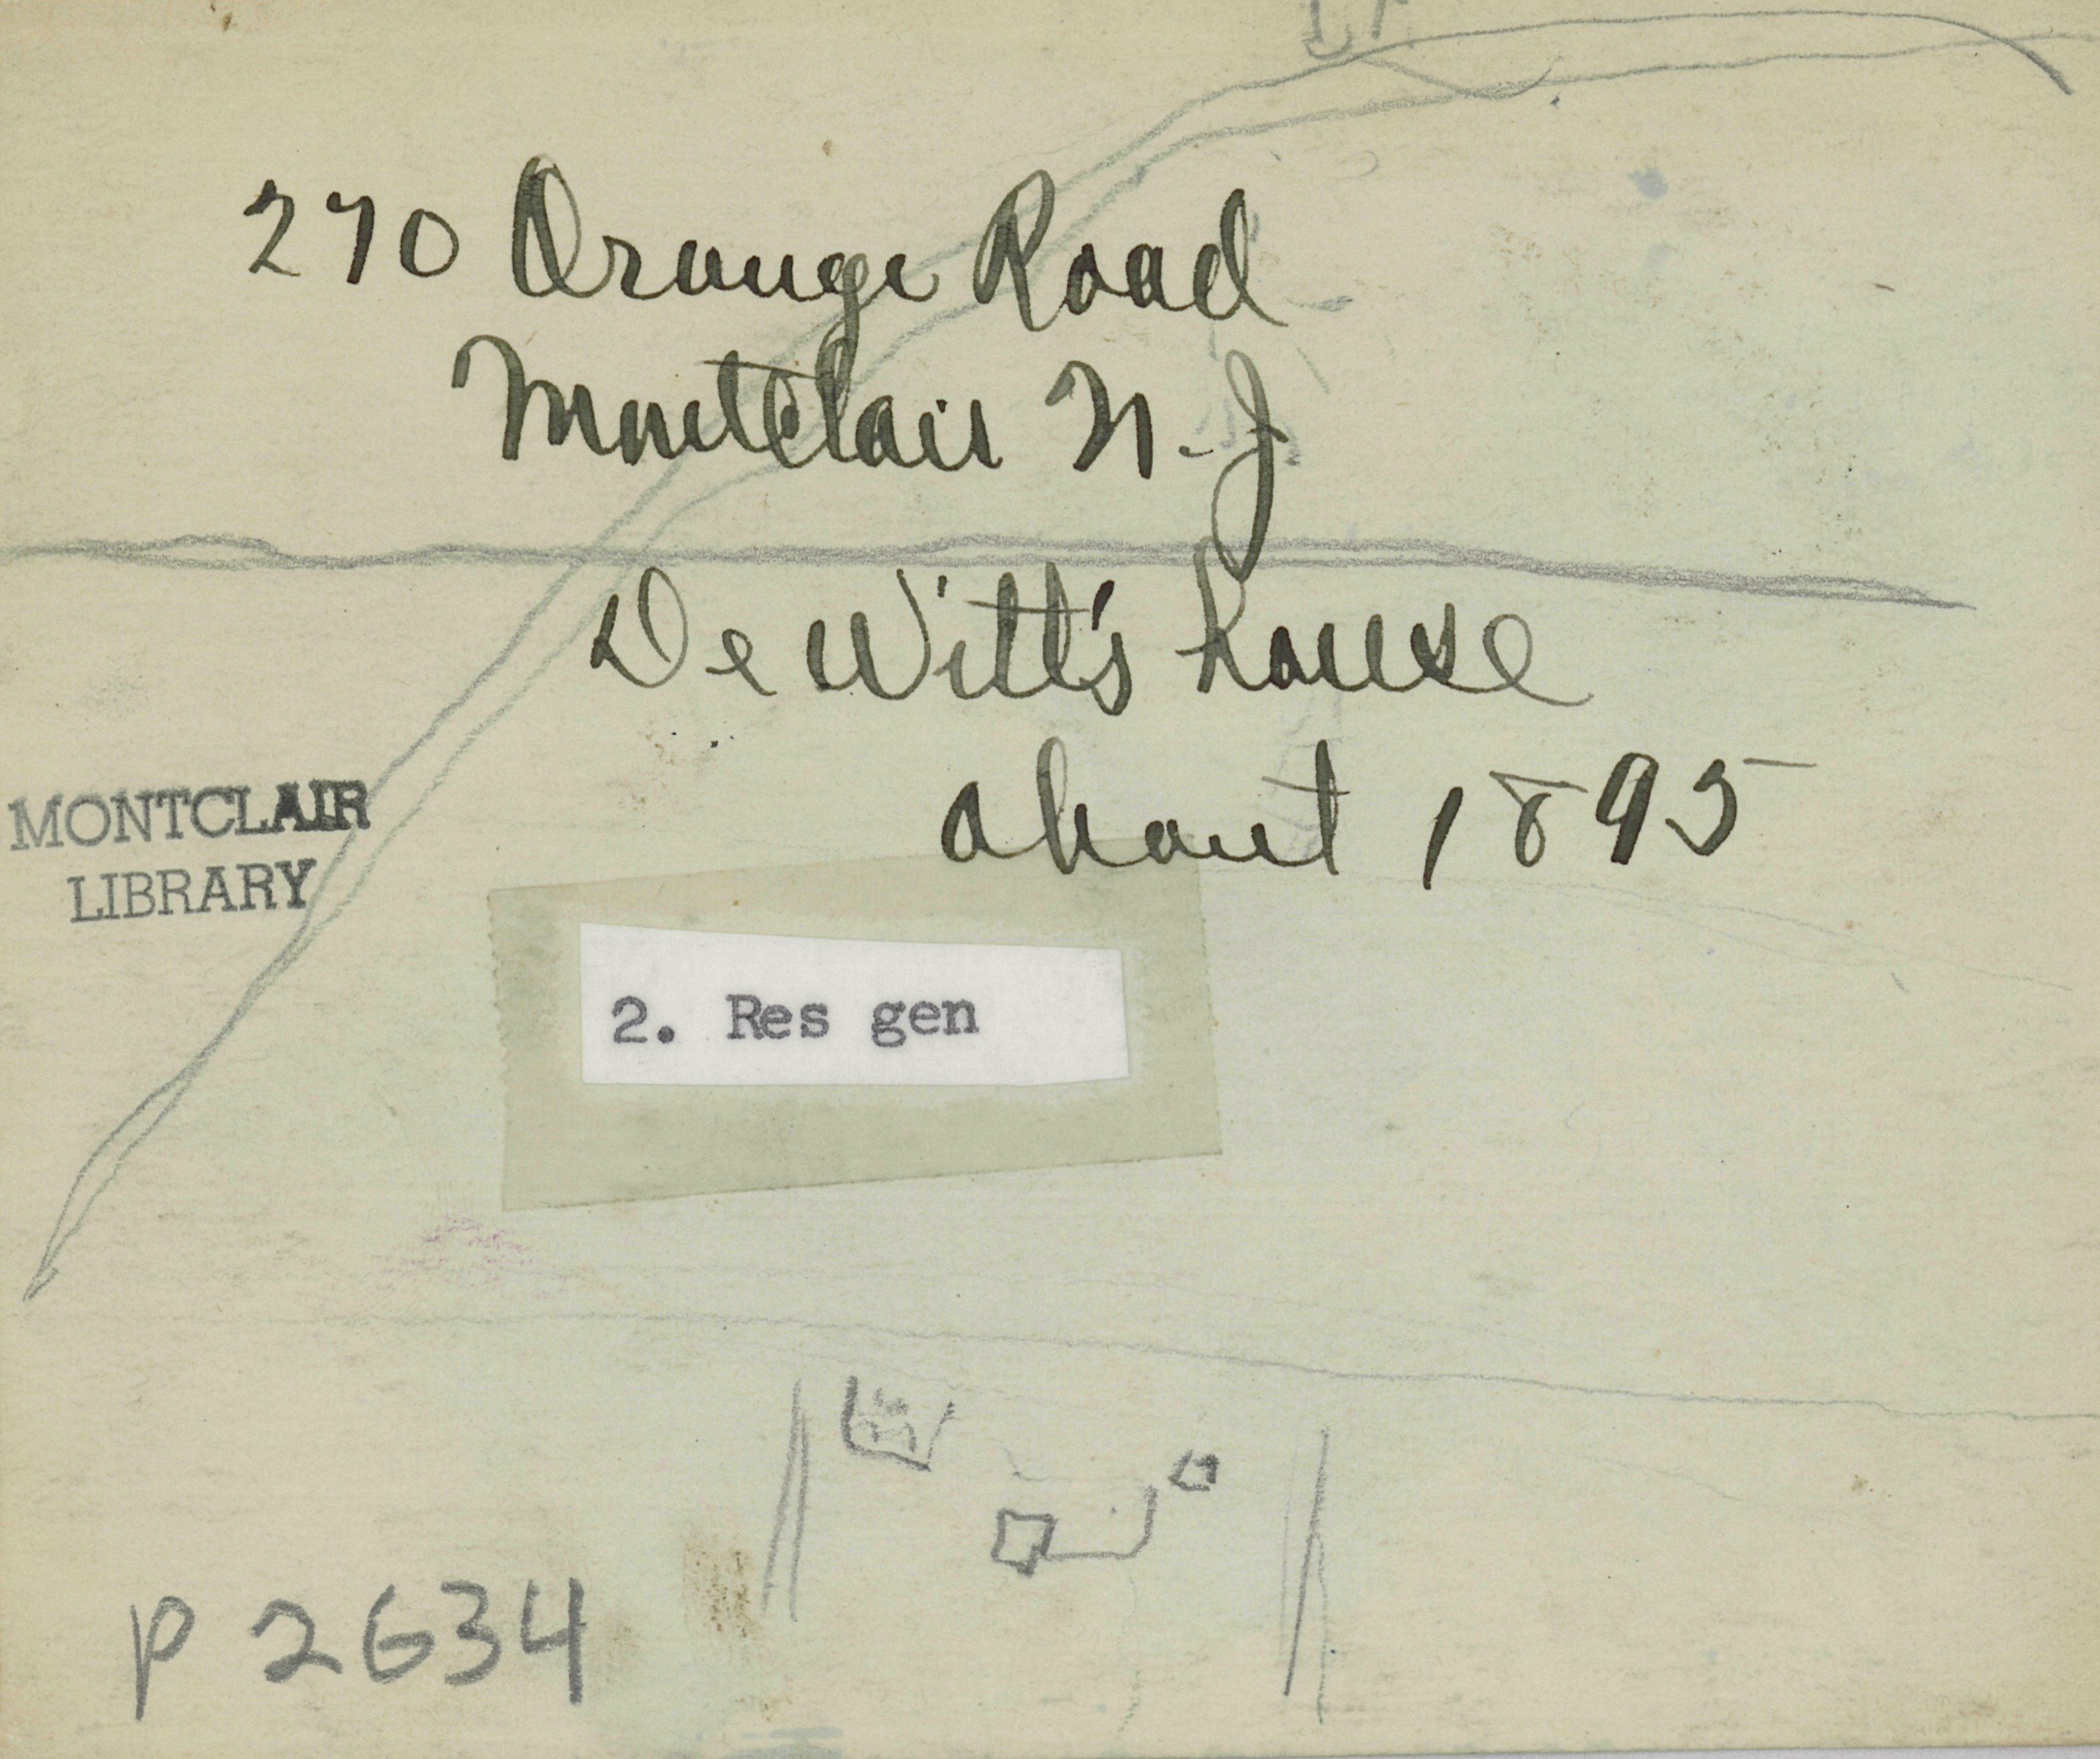 270 Orange Road
Montclair N.J
DeWitt's house
about 1895
MONTCLAIR
LIBRARY
2. Res gen
P 2634